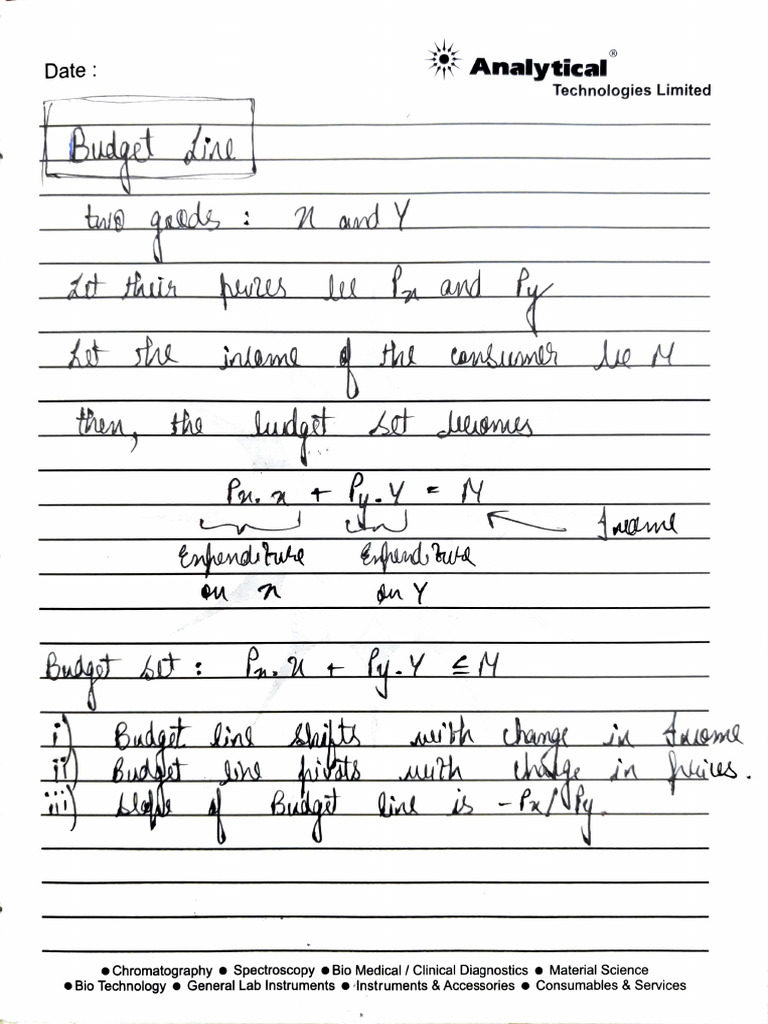 Date :
Analytical®
Technologies Limited
Budget Line
two goods : x and Y
Let their prices be Px and Py
Let the income of the consumer be M
then, the budget set becomes
Px. x + Py. Y = M
Income
Expenditure Expenditure
on x on Y
Budget set : Px. x + Py. Y ≤ M
i) Budget line shifts with change in Income
ii) Budget line pivots with change in prices.
iii) slope of Budget line is -Px/Py.
● Chromatography ● Spectroscopy ● Bio Medical / Clinical Diagnostics ● Material Science
● Bio Technology ● General Lab Instruments ● Instruments & Accessories ● Consumables & Services